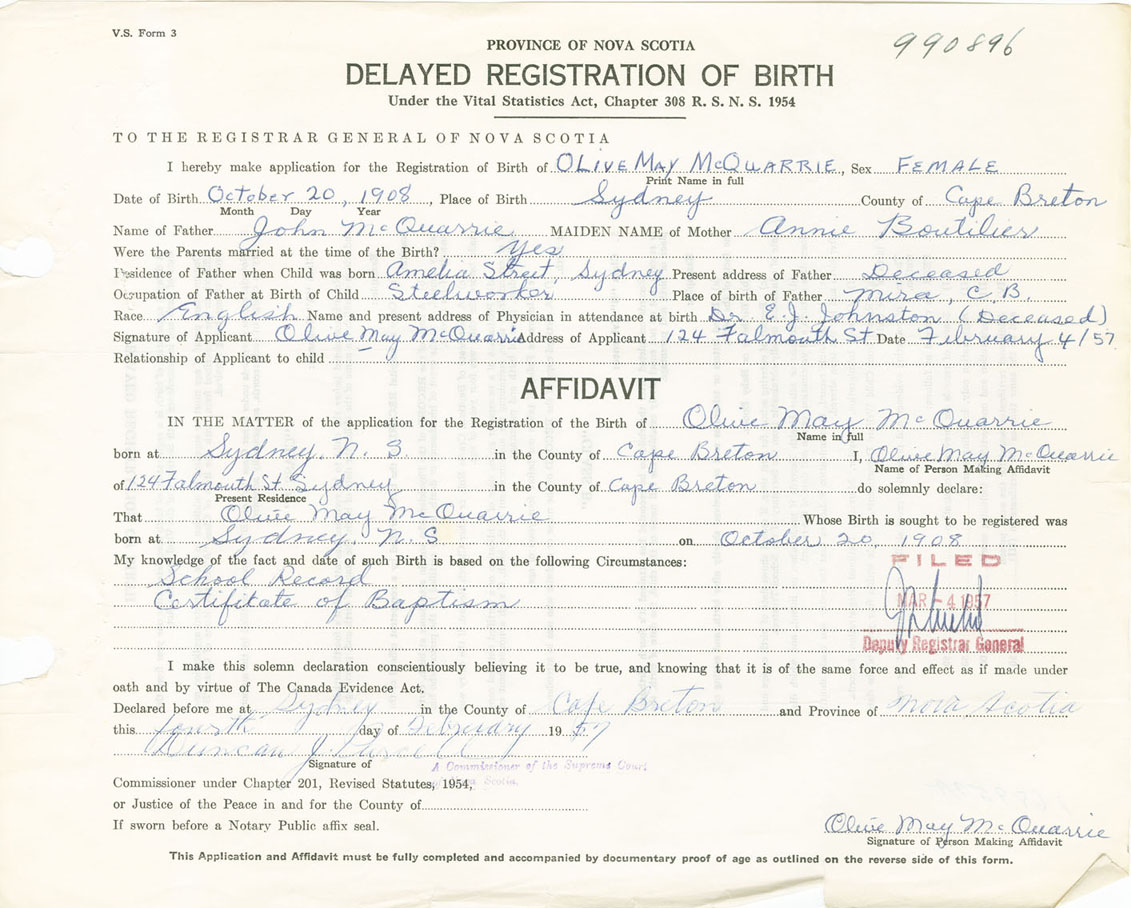 V.S. Form 3
990896
PROVINCE OF NOVA SCOTIA
DELAYED REGISTRATION OF BIRTH
Under the Vital Statistics Act, Chapter 308 R. S. N. S. 1954
TO THE REGISTRAR GENERAL OF NOVA SCOTIA
I hereby make application for the Registration of Birth of OLIVE MAY MCQUARRIE, Sex FEMALE
Print Name in full
Date of Birth October 20, 1908, Place of Birth Sydney County of Cape Breton
Month Day Year
Name of Father John McQuarrie MAIDEN NAME of Mother Annie Boutilier
Were the Parents married at the time of the Birth? Yes
Residence of Father when Child was born Amelia Street, Sydney Present address of Father Deceased
Occupation of Father at Birth of Child Steelworker Place of birth of Father Mira, C.B.
Race English Name and present address of Physician in attendance at birth Dr E.J. Johnston (Deceased)
Signature of Applicant Olive May McQuarrie Address of Applicant 124 Falmouth St Date February 4/57
Relationship of Applicant to child
AFFIDAVIT
IN THE MATTER of the application for the Registration of the Birth of Olive May McQuarrie
Name in full
born at Sydney, N. S. in the County of Cape Breton I, Olive May McQuarrie
Name of Person Making Affidavit
of 124 Falmouth St Sydney in the County of Cape Breton do solemnly declare:
Present Residence
That Olive May McQuarrie Whose Birth is sought to be registered was
born at Sydney, N. S on October 20, 1908
My knowledge of the fact and date of such Birth is based on the following Circumstances:
FILED
School Record
Certifitate of Baptism
MAR -4 1957
Deputy Registrar General
I make this solemn declaration conscientiously believing it to be true, and knowing that it is of the same force and effect as if made under
oath and by virtue of The Canada Evidence Act.
Declared before me at Sydney in the County of Cape Breton and Province of Nova Scotia
this fourth day of February 19 57
Duncan J.
Signature of
A Commissioner of the Supreme Court
Scotia.
Commissioner under Chapter 201, Revised Statutes, 1954,
or Justice of the Peace in and for the County of
If sworn before a Notary Public affix seal.
Olive May McQuarrie
Signature of Person Making Affidavit
This Application and Affidavit must be fully completed and accompanied by documentary proof of age as outlined on the reverse side of this form.